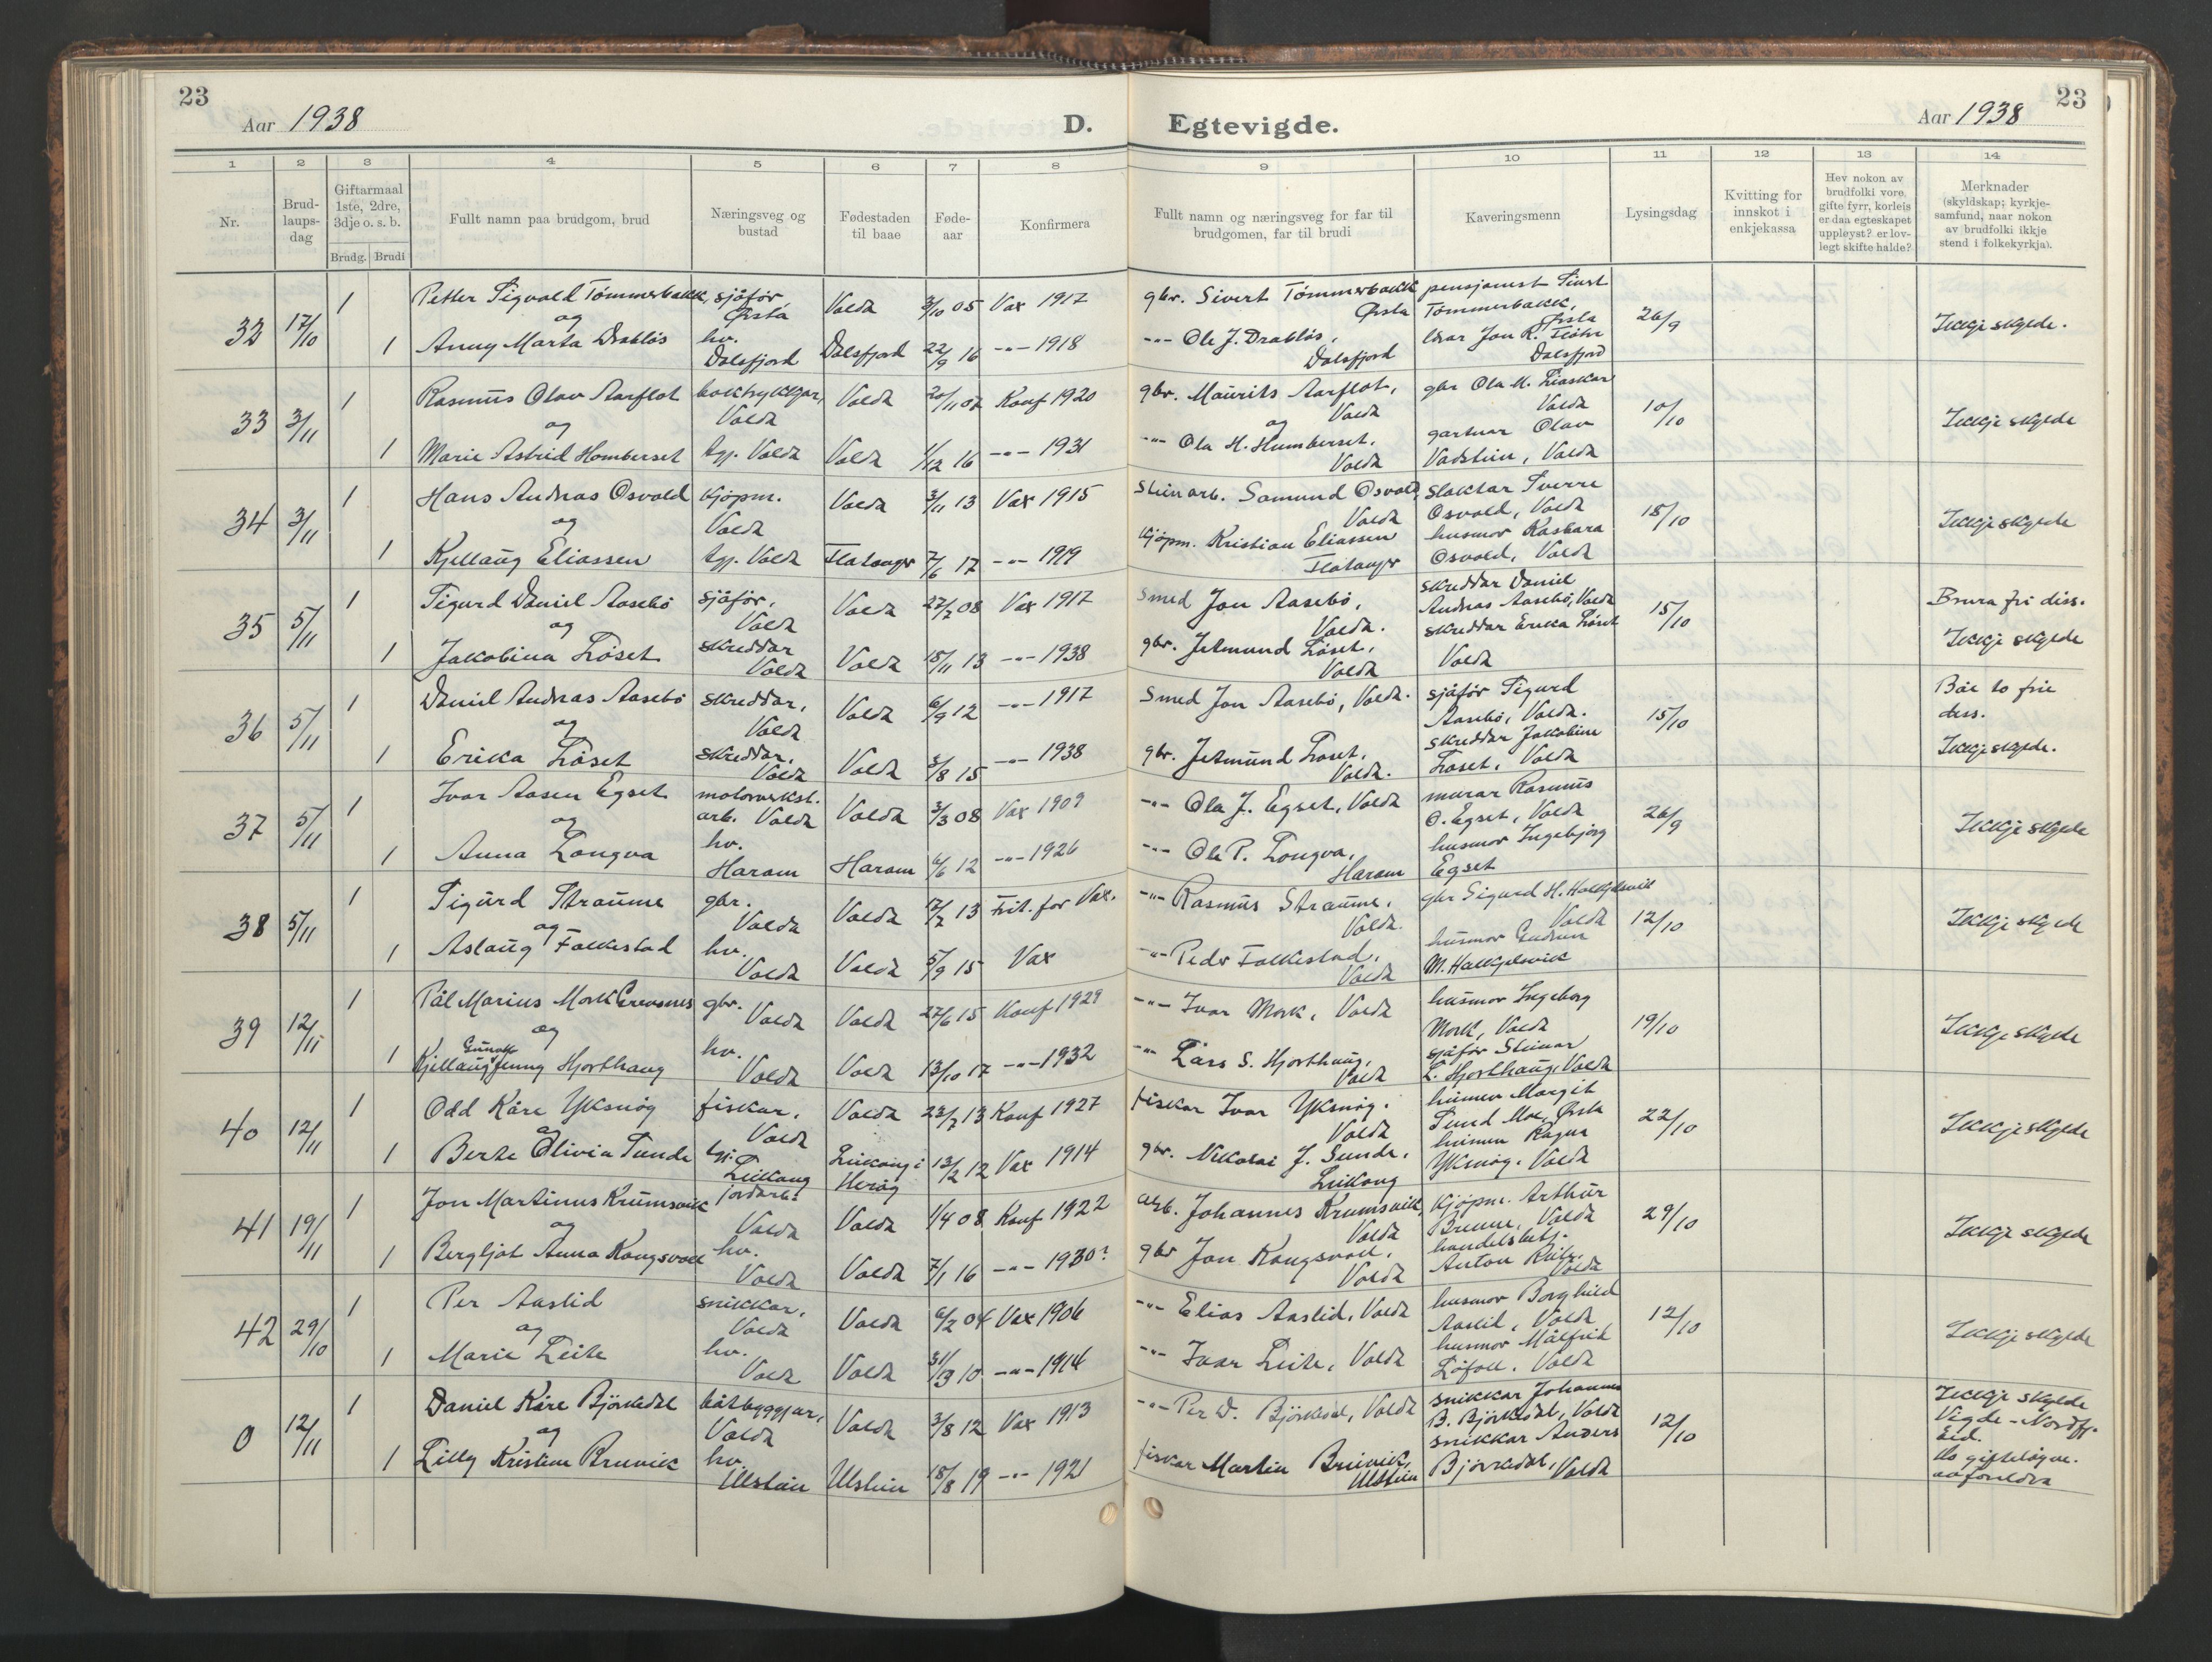 23
Aar 1938
D.
1 2 3 4 5 6 7 8
Nr.
Brud-
laups-
dag
Giftarmaal
1ste, 2dre,
3dje o. s. b.
Brudg. Brudi
Fullt namn paa brudgom, brud
Næringsveg og
bustad
Fødestaden
til baae
Føde-
aar
Konfirmera
32 17/10 1 Petter Sigvald Tømmerbakk, sjåför, Ørsta Voldа 3/10 05 Vax 1917
og
1 Anny Marta Drabløs hv. Dalsfjord Dalsfjord 22/9 16 -"- 1918
33 3/11 1 Rasmus Olav Aarflot boktrykkjar, Volda Volda 20/11 07 Konf 1920
og
1 Marie Astrid Homberset tgj. Volda Volda 1/12 16 -"- 1931
34 3/11 1 Hans Andreas Osvold kjöpm. Volda Volda 3/11 13 Vax 1915
og
1 Kjellaug Eliassen tgj. Volda Flatanger 7/6 17 -"- 1919
35 5/11 1 Sigurd Daniel Aasebö sjåför, Volda Volda 27/7 08 Vax 1917
og
1 Jakobina Löset skreddar Volda Volda 18/11 13 -"- 1938
36 5/11 1 Daniel Andreas Aasebö skreddar, Volda Volda 6/9 12 -"- 1917
og
1 Erika Löset skreddar, Volda Volda 3/8 15 -"- 1938
37 5/11 1 Ivar Aasen Egset motorverkst. arb. Volda Volda 3/3 08 Vax 1909
og
1 Anna Longva hv. Haram Haram 4/6 12 -"- 1926
38 5/11 1 Sigurd Straume gbr. Volda Volda 7/7 13 Frit. for Vax.
og
1 Aslaug Folkestad hv. Volda Volda 5/9 15 Vax
39 12/11 1 Pål Marius Mork Grevsnes gbr. Volda Volda 27/6 15 Konf 1929
og
1 Kjellaug Jenny Hjorthaug hv. Volda Volda 13/10 17 -"- 1932
40 12/11 1 Odd Kåre Yksnøy fiskar, Volda Volda 23/7 13 Konf 1927
og
1 Berte Olivia Sunde tgj. Leikong Leikong i Herøy 13/2 12 Vax 1914
41 19/11 1 Jon Martinus Krumsvik jordarb. Volda Volda 1/4 08 Konf 1922
og
1 Bergljot Anna Kongsvoll hv. Volda Volda 7/1 16 -"- 1930?
42 29/10 1 Per Aaslid snikkar, Volda Volda 6/2 04 Vax 1906
og
1 Marie Leite hv. Volda Volda 31/13 10 -"- 1914
0 12/11 1 Daniel Kåre Björkedal båtbyggjar, Volda Volda 3/8 12 Vax 1913
og
1 Lilly Kristine Brunvik hv. Ulstein Ulstein 18/8 19 -"- 1921
23
Egtevigde.
Aar 1938
9 10 11 12 13 14
Fullt namn og næringsveg for far til
brudgomen, far til brudi
Kaveringsmenn
Lysingsdag
Kvitting for
innskot i
enkjekassa
Hev nokon av
brudfolki vore
gifte fyrr, korleis
er daa egteskapet
uppleyst? er lov-
legt skifte halde?
Merknader
(skyldskap; kyrkje-
samfund, naar nokon
av brudfolki ikkje
stend i folkekyrkja).
gbr. Sivert Tömmerbakk Ørsta pensjonist Sivert Tömmerbakk, Ørsta 26/9 Ikkje skylde.
-"- Ole J. Drabløs, Dalsfjord lærar Jon R. Dalsfjord
gbr. Maurits Aarflot, Volda gbr Ola M. Liaskar Volda 10/10 Ikkje skylde
og
-"- Ola H. Humberset, Volda gartnar Olav Vadstein, Volda
Steinarb. Samund Osvold, Volda slaktar Sverre Osvold, Volda 18/10 Ikkje skylde
Kjöpm. Kristian Eliassen Flatanger husmor Kasbara Osvold, Volda
Smed Jon Aasebö, Volda. skreddar Daniel Andreas Aasebö, Volda 15/10 Brura fri diss.
gbr. Jetmund Löset, Volda skreddar Erika Löset Volda Ikkje skylde
Smed Jon Aasebö, Volda. sjåför Sigurd Aasebö, Volda. 15/10 Båe to frie diss.
gbr. Jetmund Löset, Volda. skreddar Jakobine Löset, Volda Ikkje skylde.
-"- Ola J. Egset, Volda murar Rasmus O. Egset, Volda 26/9 Ikkje skylde
-"- Ole P. Longva, Haram husmor Ingebjörg Egset
-"- Rasmus Straume, Volda. gbr Sigurd H. Halkjelsvik Volda 12/10 Ikkje skylde
-"- Peder Folkestad, Volda husmor Gudrun M. Halkjelsvik
-"- Ivar Mork, Volda husmor Ingeborg Mork, Volda 19/10 Ikkje skylde
-"- Lars S. Hjorthaug, Volda sjåför Steinar L. Hjorthaug, Volda
fiskar Ivar Yksnøy, Volda husmor Margit Sund Moe, Ørsta 22/10 Ikkje skylde
gbr. Nikolai J. Sunde, Leikong husmor Ragna Yksnøy, Volda
arb. Johannes Krumsvik, Volda Kjöpm. Arthur Brune, Volda 29/10 Ikkje skylde
gbr Jon Kongsvoll, Volda handelsbetj. Anton Volda
-"- Elias Aaslid, Volda husmor Borghild Aaslid, Volda 12/10 Ikkje skylde
-"- Ivar Leite, Volda husmor Målfrid Löfoll, Volda
-"- Per D. Björkedal, Volda snikkar Johannes B. Björkedal, Volda 12/10 Ikkje skylde
Vigde - Nordfj. Eid.
fiskar Martin Brunvik, Ulstein snikkar Anders Björkedal, Volda